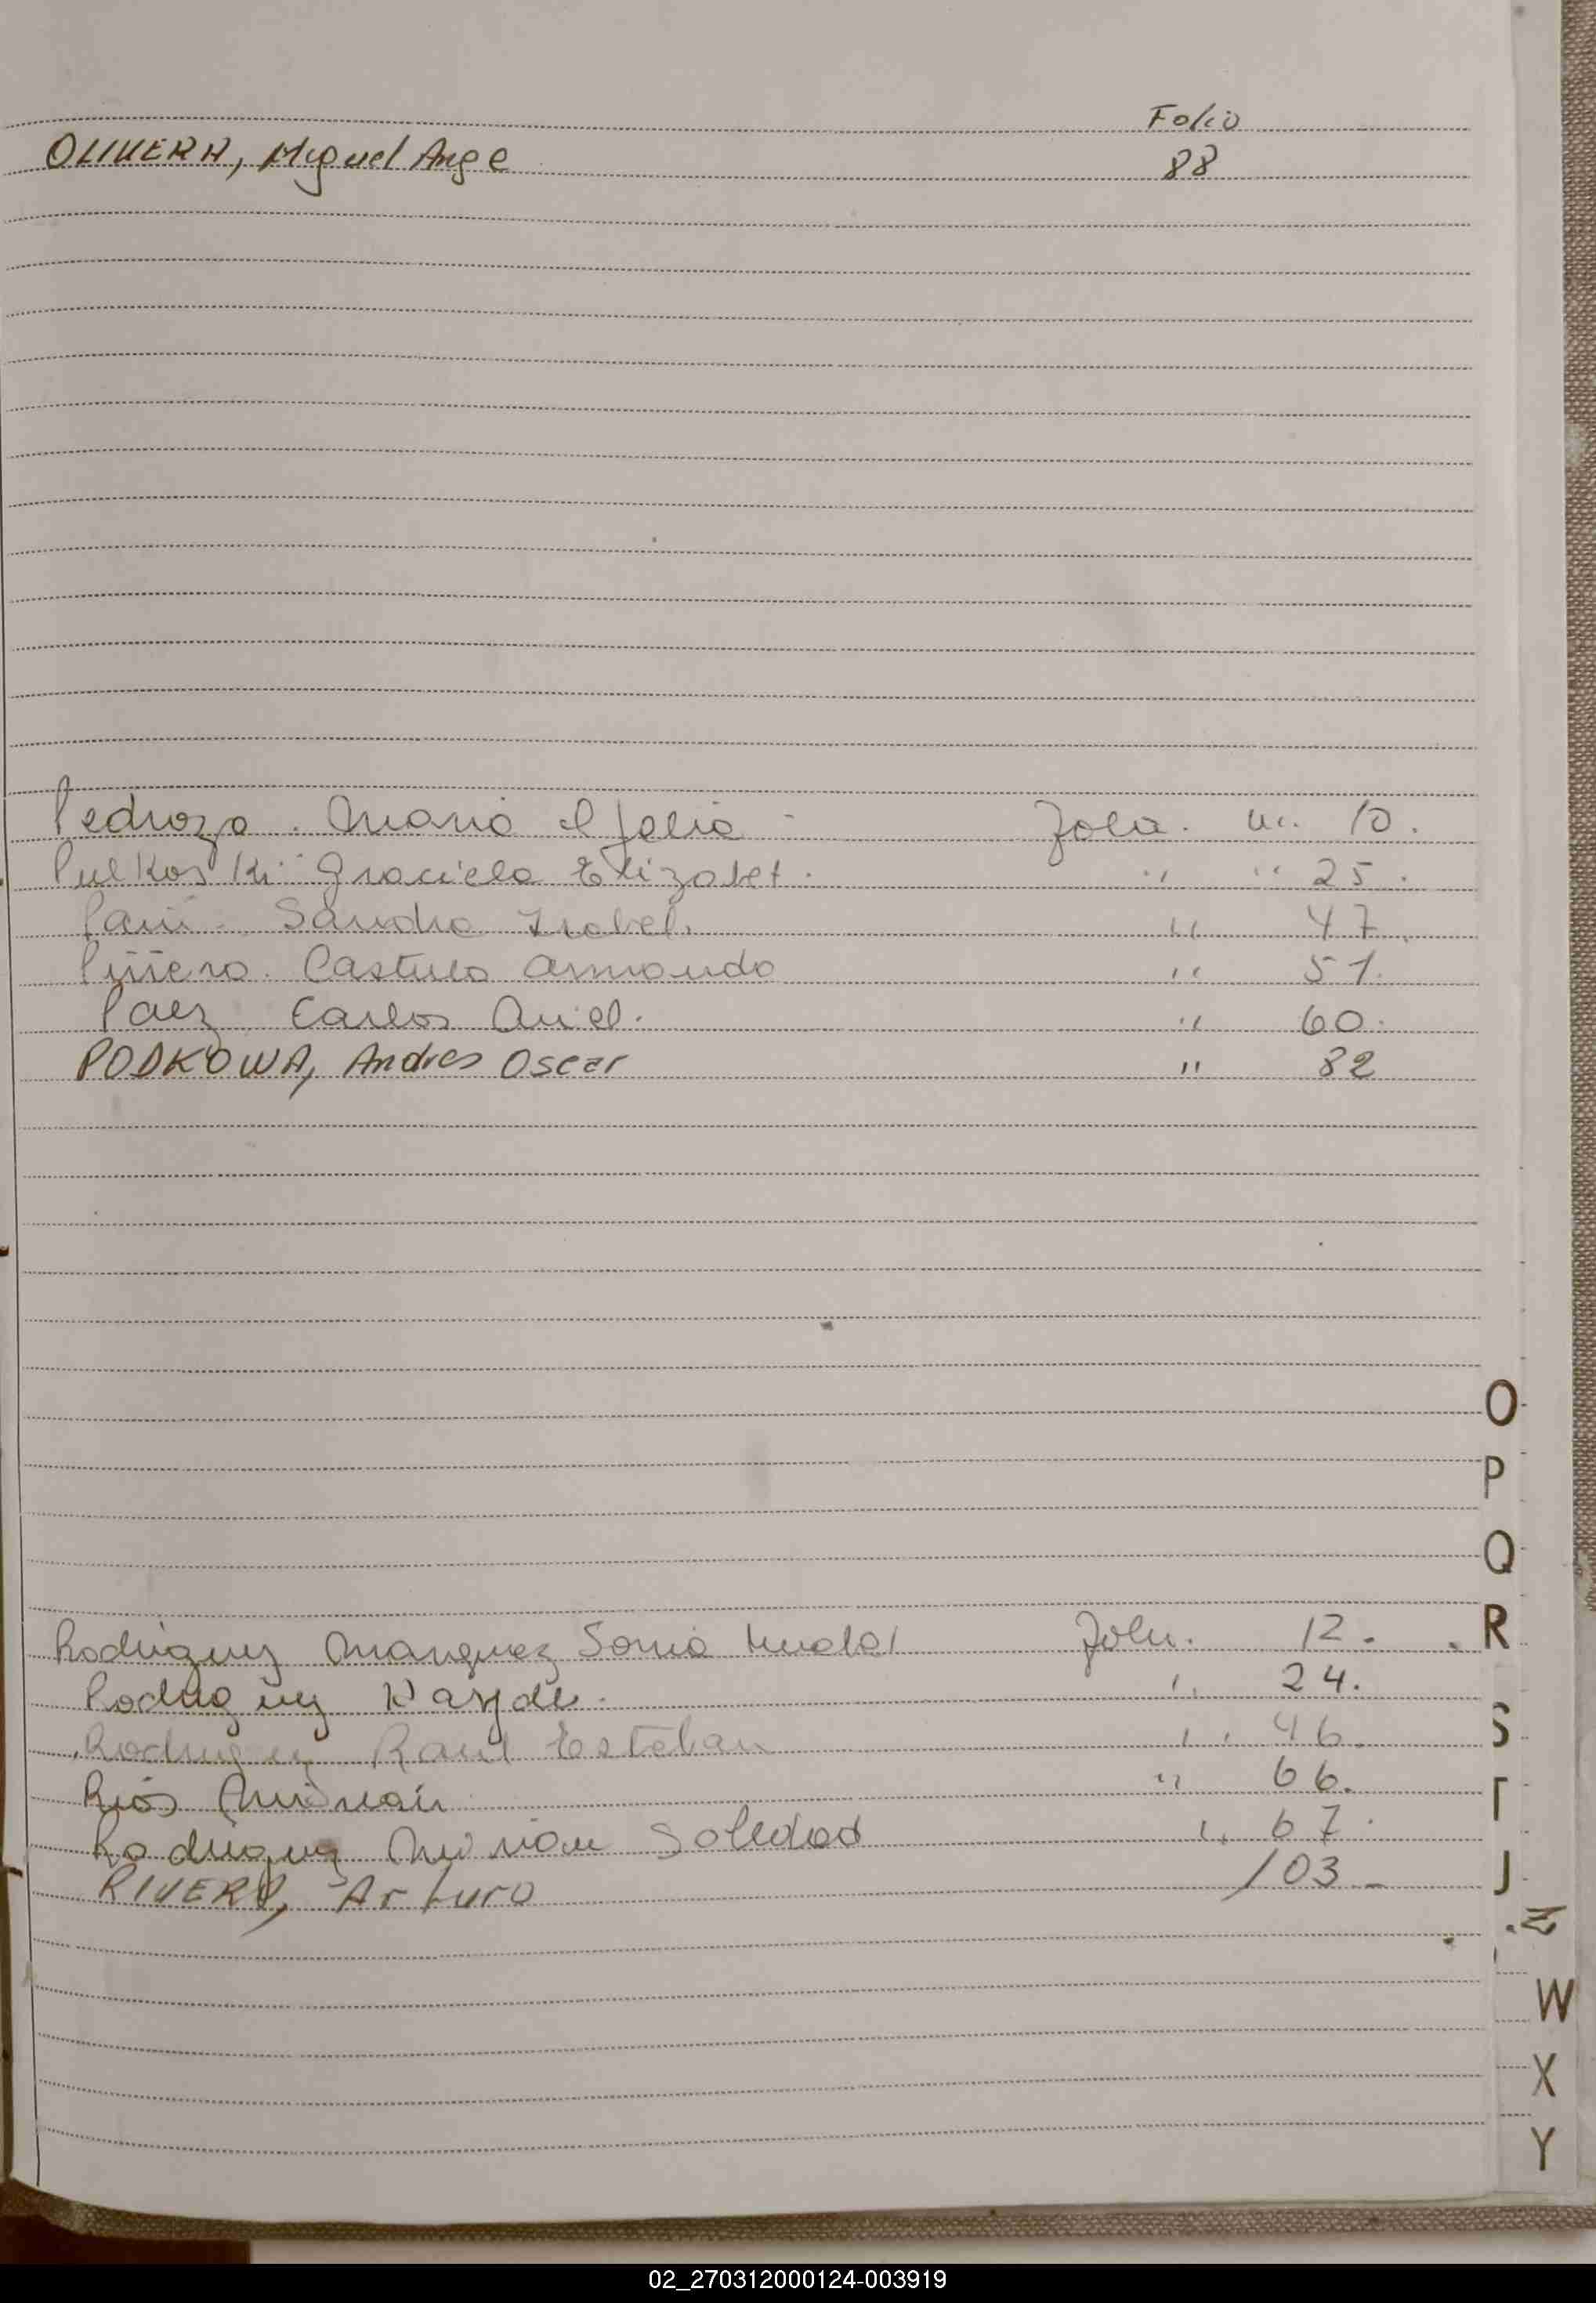 Folio
OLIVERA, Miguel Ange 88
Pedrozo. Maria Folio. n. 10.
Pulkoski Graciela Elizabet. " " 25.
Sandra Isabel. " 47.
Piñero. Castulo Armando " 51.
Paez Carlos Ariel. " 60.
PODKOWA, Andres Oscar " 82
O
P
Q
Rodriguez Marquez Sonia Folio. 12. R
Rodriguez Haydee. " 24.
Rodriguez Raul Esteban " 46. S
Rios Mirian " 66. T
Rodriguez Mirian Soledad " 67.
RIVERO, Arturo 103 - J
Z
W
X
Y
02_270312000124-003919